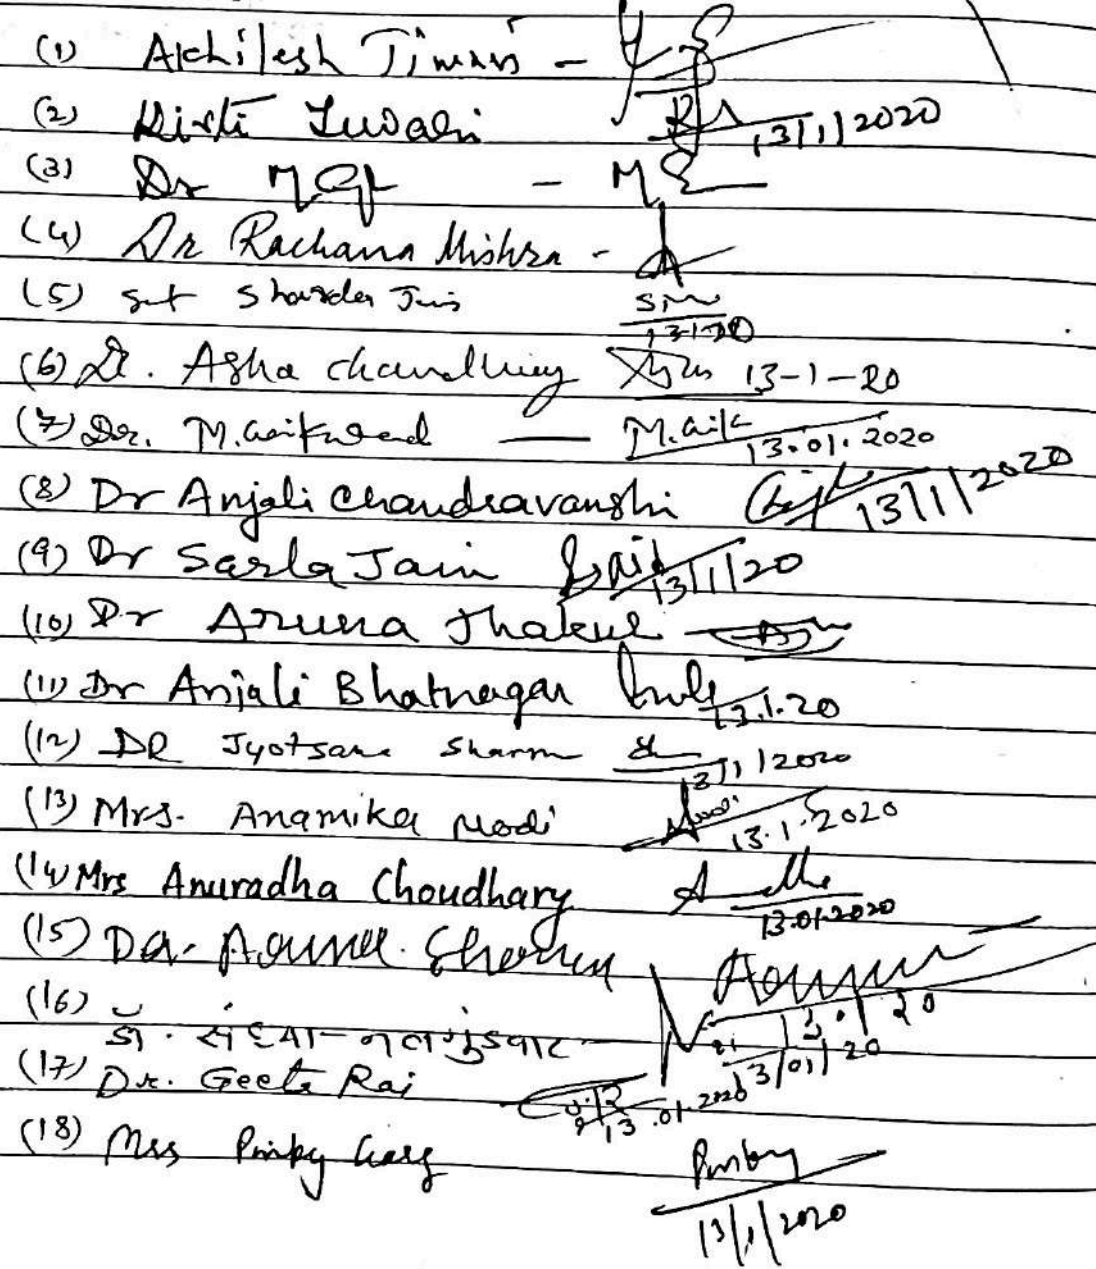 (1) Akhilesh Tiwari -
(2) Kirti 13/1/2020
(3) Dr -
(4) Dr Rachana Mishra -
(5) Smt Sharda 13-1-20
(6) Dr. Asha Chaudhary 13-1-20
(7) Dr. M. Gaikwad — M. Gaik 13.01.2020
(8) Dr Anjali Chandravanshi 13/1/2020
(9) Dr Sarla Jain 13/1/20
(10) Dr Aruna Thakur
(11) Dr Anjali Bhatnagar 13.1.20
(12) DR Jyotsana Sharma 13/1/2020
(13) Mrs. Anamika Modi 13.1.2020
(14) Mrs Anuradha Choudhary 13.01.2020
(15) Dr. Sharma 13.1.20
(16) डॉ. संध्या 13/01/20
(17) Dr. Geeta Rai 13.01.2020
(18) Mrs Pinky Garg Pinky 13/1/2020